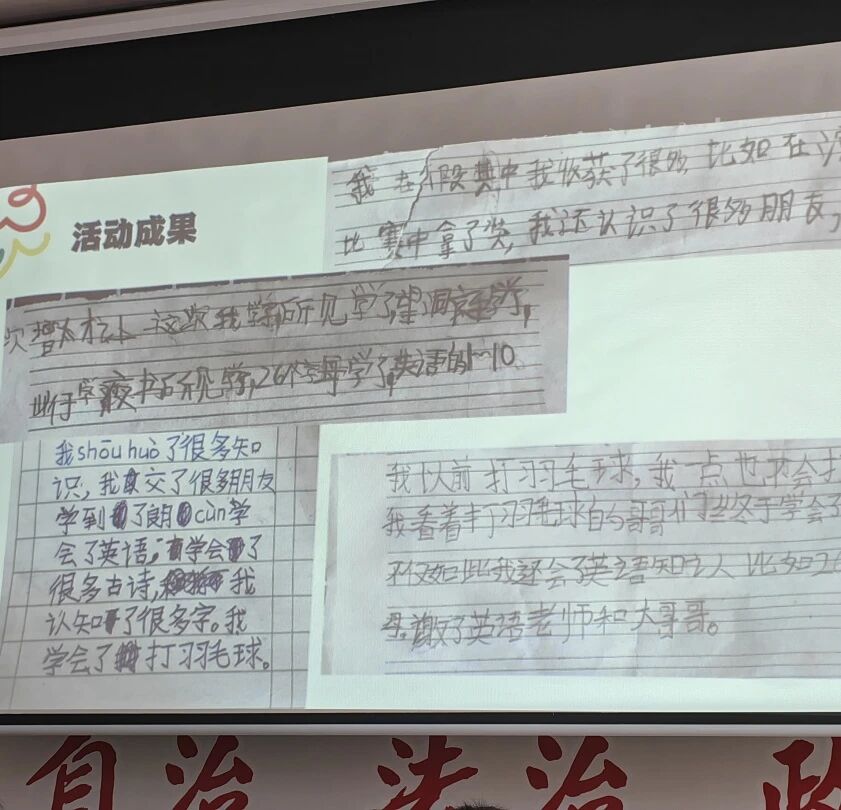 活动成果
我在假其中我收获了很多,比如在
比赛中拿了奖,我还认识了很多朋友,
这次我学所见学了望洞庭学
学所见学,26个字母学了英语的1~10
我shōu huò了很多知
识,我交了很多朋友
学到了朗cùn学
会了英语,学会了
很多古诗,我
认知了很多字。我
学会了打羽毛球。
我以前打羽毛球,我一点也不会打
我看着打羽毛球的哥哥们终于学会了
不仅如此我还会了英语知
母。谢了英语老师和大哥哥。
自治 法治 政